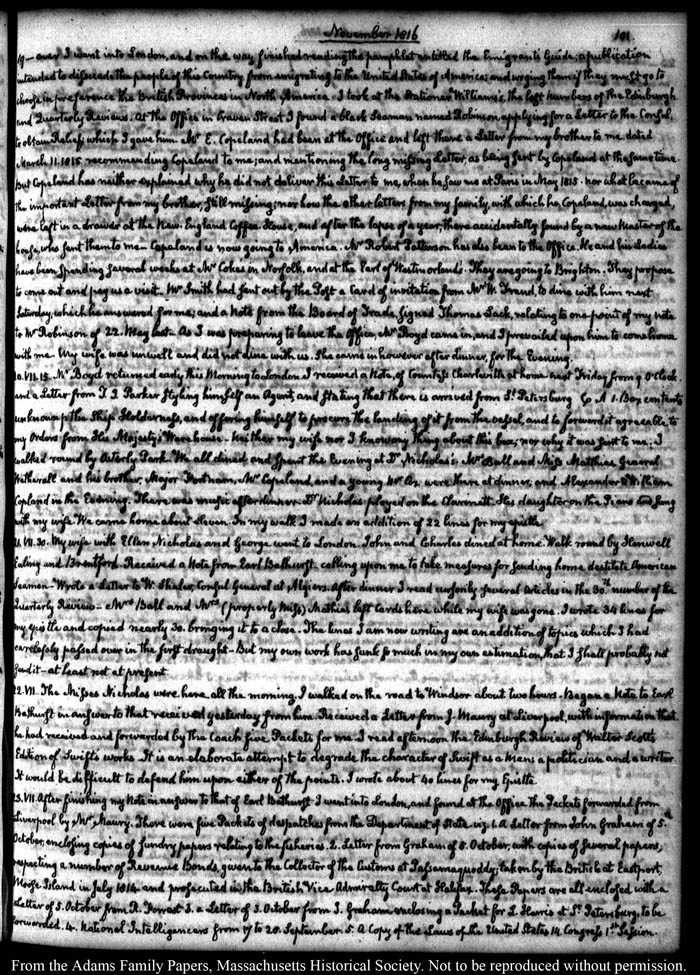 November 1816
191.
19— over I went into London, and on the way finished reading the pamphlet entitled the Emigrant's Guide; a publication
intended to dissuade the people of this Country from emigrating to the United States of America; and urging them if they must go to
choose in preference the British Provinces in North America. I took at the Stationer Williams's, the last numbers of the Edinburgh
and Quarterly Reviews. At the Office in Craven Street I found a black Seaman named Robinson, applying for a Letter to the Consul,
to obtain Relief; which I gave him. Mr E. Copeland had been at the Office and left there a Letter from my brother to me, dated
March 11. 1815. recommending Copeland to me; and mentioning the long missing Letter, as being sent by Copeland at the same time.
But Copeland has neither explained why he did not deliver this Letter to me, when he saw me at Paris in May 1815. nor what became of
the important Letter from my brother, still missing; nor how the other letters from my family, with which he, Copeland, was charged,
were left in a drawer at the New England Coffee House, and after the lapse of a year, there accidentally found by a new Master of the
house, who sent them to me— Copeland is now going to America. Mr Robert Patterson has also been to the Office. He and his Ladies
have been spending several weeks at Mr Cokes in Norfolk, and at the Earl of Westmorland's. They are going to Brighton. They propose
to come out and pay us a visit. Mr Smith had sent out by the Post a Card of invitation from Mr W. Freud, to dine with him next
Saturday, which he answered for me; and a Note from the Board of Trade, signed Thomas Lack, relating to one point of my note
to Mr Robinson of 22. May last. As I was preparing to leave the Office, Mr Boyd came in, and I prevailed upon him to come home
with me. My wife was unwell and did not dine with us. She came in however after dinner, for the Evening.
20. VII. 15. Mr Boyd returned early this Morning to London. I received a Note, of Countess Charleville at home next Friday from 9 O'Clock
and a Letter from T. J. Parker styling himself an Agent, and stating that there is arrived from St Petersburg A 1. Box contents
unknown the Ship Holderness, and offering himself to procure the landing of it from the vessel, and to forward it agreeable to
my Orders from His Majesty's Warehouse. Neither my wife nor I know any thing about this box; nor why it was sent to me. I
walked round by Osterly Park. We all dined, and spent the Evening at Dr Nicholas's. Mrs Ball and Miss Matthias, General
Wetherall and his brother, Major Portnam, Mr Copeland, and a young Mr were there at dinner, and Alexander & William
Copland in the Evening. There was music after dinner. Dr Nicholas played on the Clarinett. His daughter on the Piano and sung
with my wife. We came home about eleven. In my walk I made an addition of 22 lines for my epistle.
21. VII. 30. My wife with Ellen Nicholas and George went to London. John and Charles dined at home. Walk round by Hanwell
Ealing and Brentford. Received a Note from Earl Bathurst. calling upon me to take measures for sending home destitute American
Seamen— Wrote a Letter to W. Shaler, Consul General at Algiers. After dinner I read cursorily several articles in the 30th number of the
Quarterly Review— Mrs Ball and Mrs (properly Miss) Mathias left Cards here while my wife was gone. I wrote 34 lines for
my epistle and copied nearly 30. bringing it to a close. The lines I am now writing are an addition of topics which I had
carelessly passed over in the first draught— But my own work has sunk so much in my own estimation, that I shall probably not
send it— at least not at present.
22. VI. The Misses Nicholas were here all the morning. I walked on the road to Windsor about two hours. Began a Note to Earl
Bathurst in answer to that received yesterday from him. Received a Letter from J. Maury at Liverpool, with information that
he had received and forwarded by the Coach five Packets for me. I read afternoon the Edinburgh Review of Walter Scott's
Edition of Swift's works. It is an elaborate attempt to degrade the character of Swift as a Man, a politician and a writer.
It would be difficult to defend him upon either of the points. I wrote about 40 lines for my Epistle.
23. VII. After finishing my Note in answer to that of Earl Bathurst I went into London, and found at the Office the Packets forwarded from
Liverpool by Mr Maury. There were five Packets of despatches from the Department of State. viz. 1. A Letter from John Graham of 5th
October, enclosing copies of sundry papers relating to the fisheries. 2. Letter from Graham of 8. October, with copies of several papers,
respecting a number of Revenue Bonds, given to the Collector of the Customs at Passamaquoddy; taken by the British at Eastport,
Moose Island in July 1814. and prosecuted in the British Vice Admiralty Court at Halifax. These Papers are all enclosed with a
Letter of 5. October from R. Forrest 3. a Letter of 3. October from J. Graham enclosing a Packet for L. Harris at St Petersburg, to be
forwarded. 4. National Intelligencers from 17 to 20. September. 5. A Copy of the Laws of the United States 14 Congress 1st Session.
From the Adams Family Papers, Massachusetts Historical Society. Not to be reproduced without permission